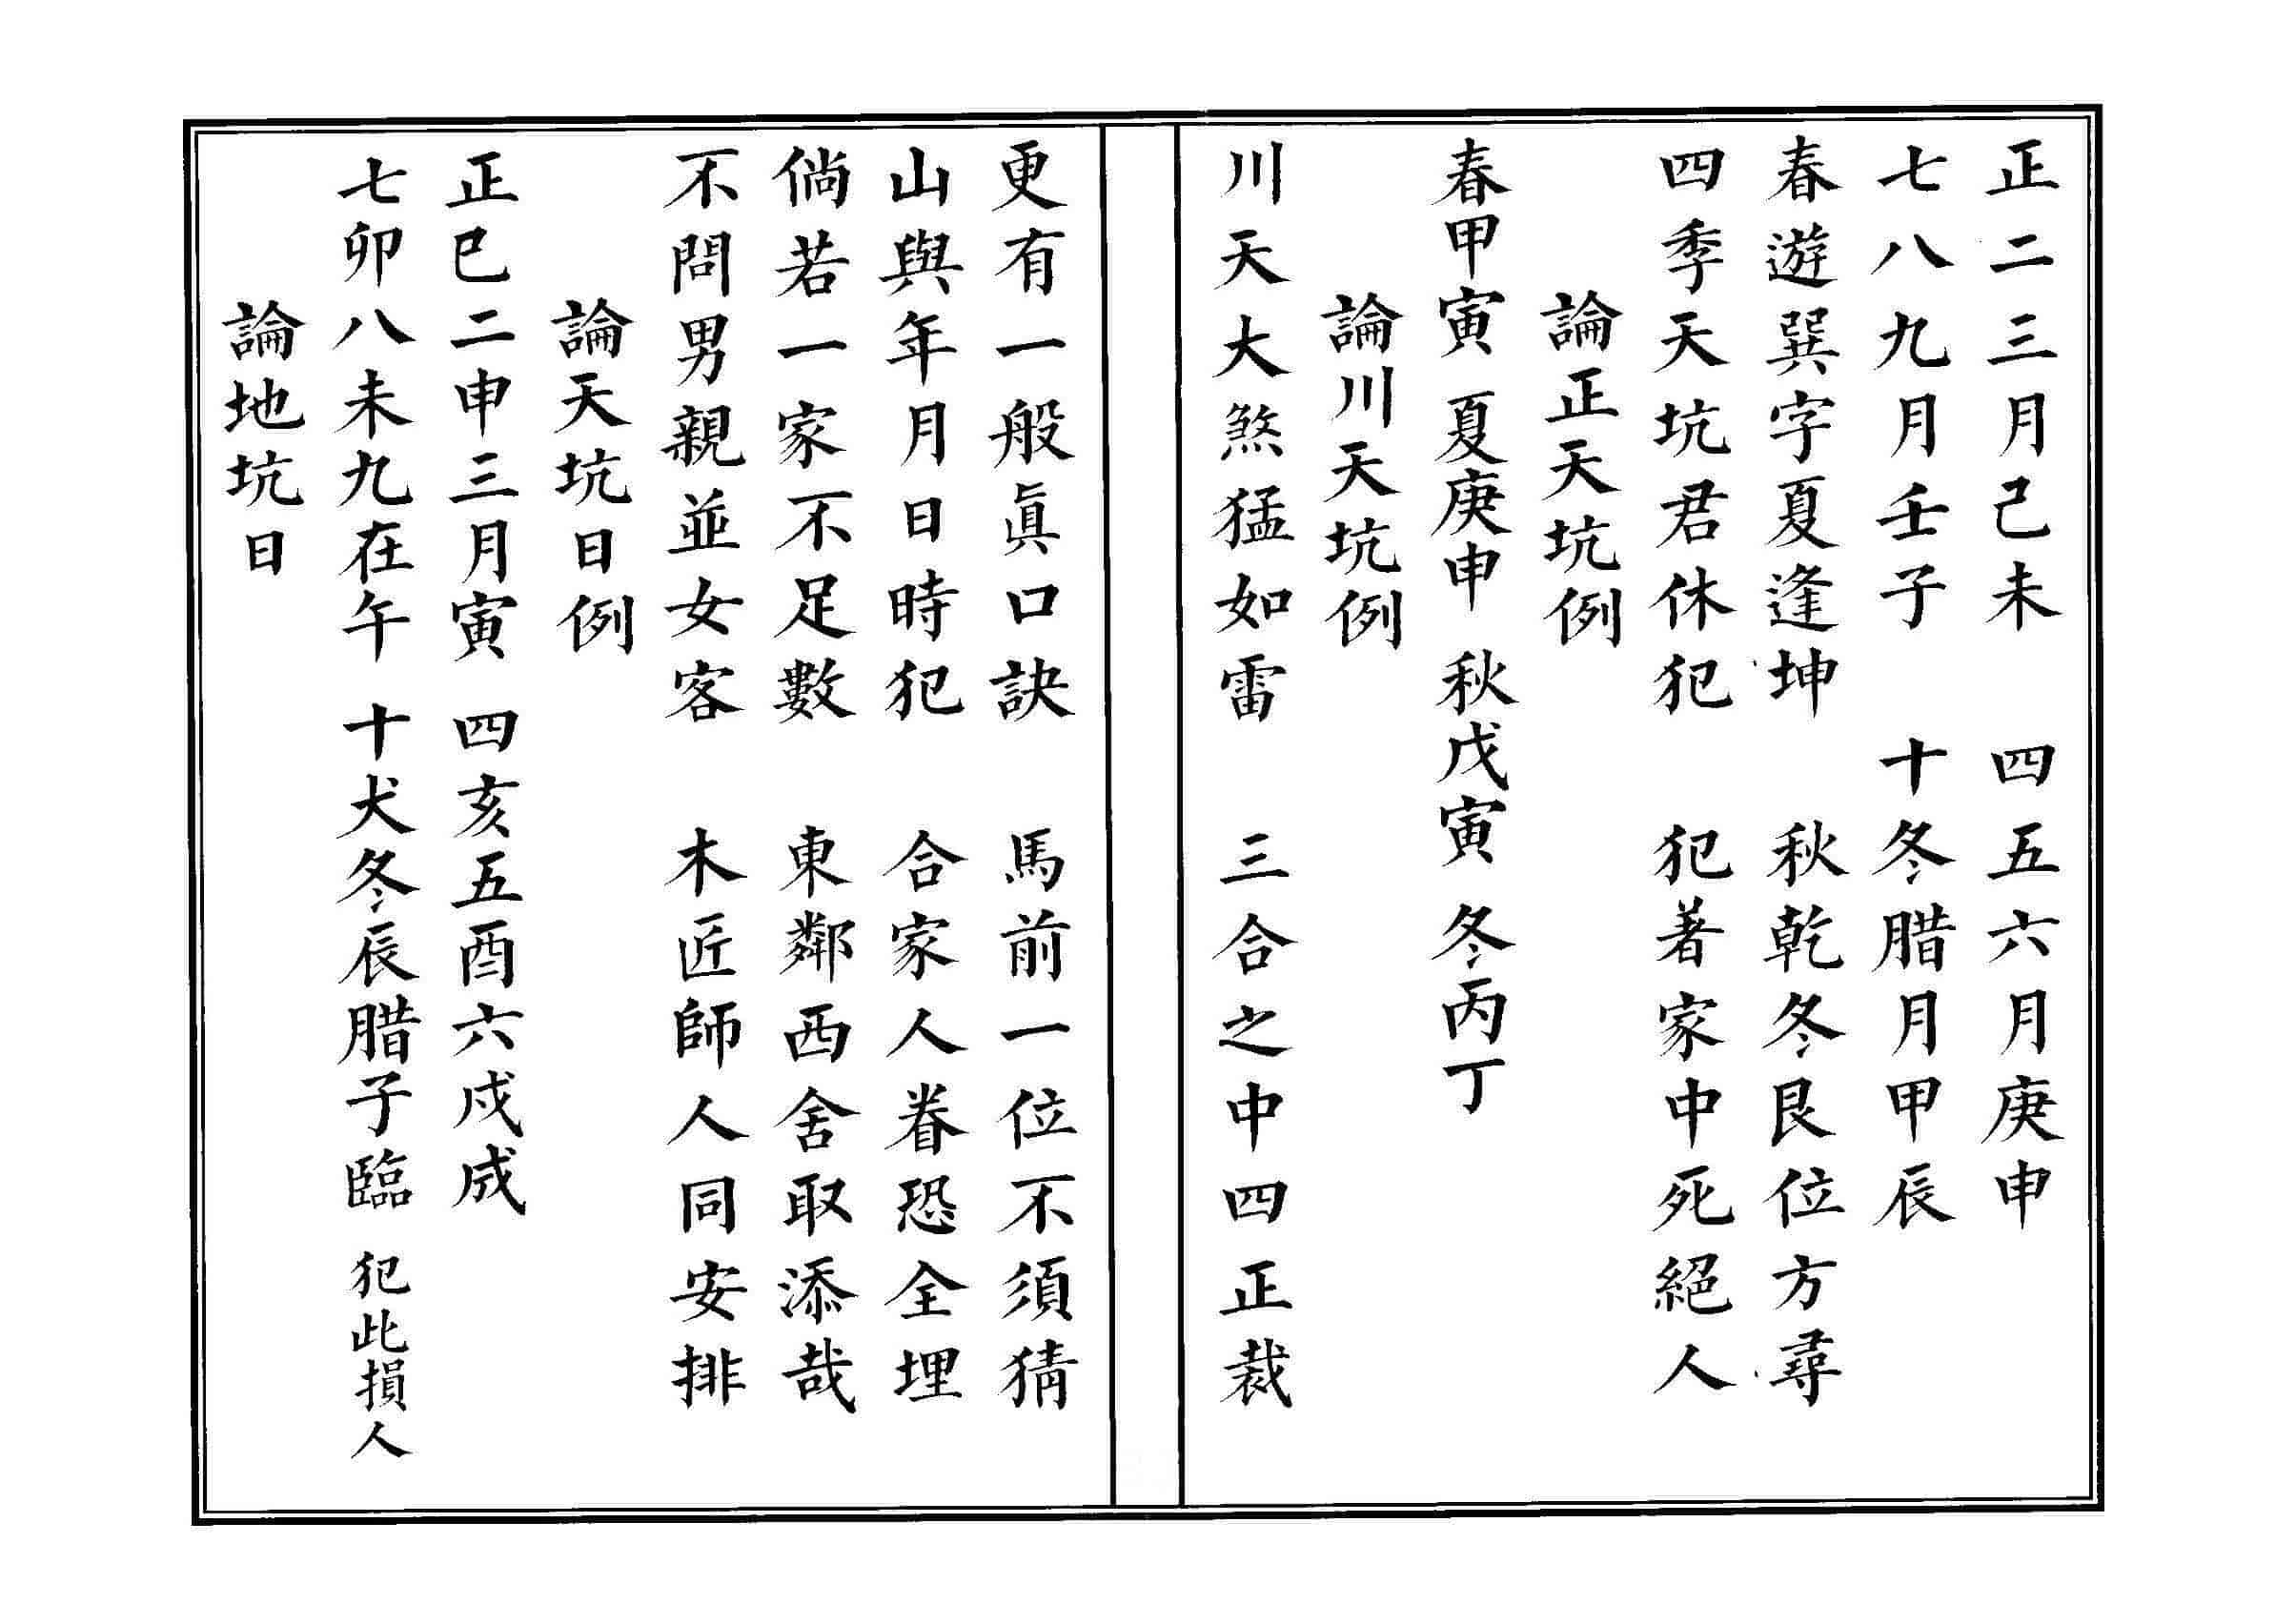 正二三月己未　四五六月庚申
七八九月壬子　十冬腊月甲辰
春遊巽字夏逢坤　秋乾冬艮位方尋
四季天坑君休犯　犯著家中死絕人
論正天坑例
春甲寅　夏庚申　秋戊寅　冬丙丁
論川天坑例
川天大煞猛如雷　三合之中四正裁
更有一般眞口訣　馬前一位不須猜
山與年月日時犯　合家人眷恐全埋
倘若一家不足數　東鄰西舍取添哉
不問男親並女客　木匠師人同安排
論天坑日例
正巳二申三月寅　四亥五酉六戍成
七卯八未九在午　十犬冬辰腊子臨　犯此損人
論地坑日